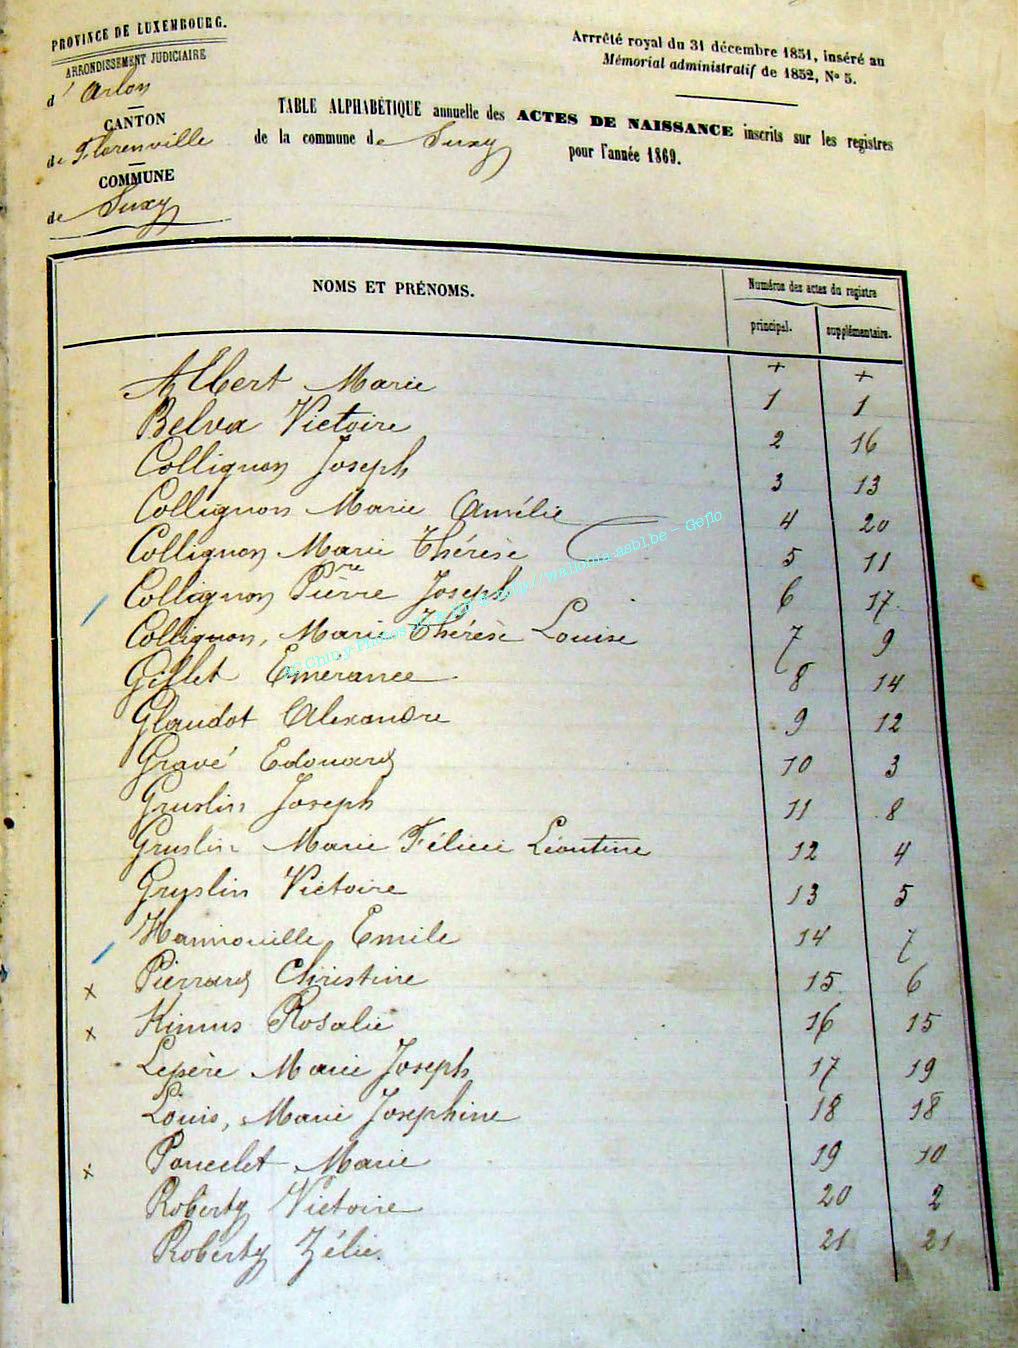 PROVINCE DE LUXEMBOURG.
ARRONDISSEMENT JUDICIAIRE
d'Arlon
CANTON
de Florenville
COMMUNE
de Suxy
Arrrêté royal du 31 décembre 1851, inséré au
Mémorial administratif de 1852, No 5.
TABLE ALPHABÉTIQUE annuelle des ACTES DE NAISSANCE inscrits sur les registres
de la commune de Suxy
pour l'année 1869.
NOMS ET PRÉNOMS.
Numéros des actes du registre
principal. supplémentaire.
+ +
Albert Marie 1 1
Belva Victoire 2 16
Collignon Joseph 3 13
Collignon Marie Amélie 4 20
Collignon Marie Thérèse 5 11
Collignon Pierre Joseph 6 17
Collignon, Marie Thérèse Louise 7 9
Gillet Emerance 8 14
Glaudot Alexandre 9 12
Gravé Edouard 10 3
Gruslin Joseph 11 8
Gruslin Marie Félicie Léontine 12 4
Gruslin Victoire 13 5
Hannouille Emile 14 7
x Pierrard Christine 15 6
x Kimus Rosalie 16 15
Lepère Marie Joseph 17 19
Louis, Marie Josephine 18 18
x Poncelet Marie 19 10
Roberty Victoire 20 2
Roberty Zélie. 21 21
http://wallonia-asbl.be - Geflo